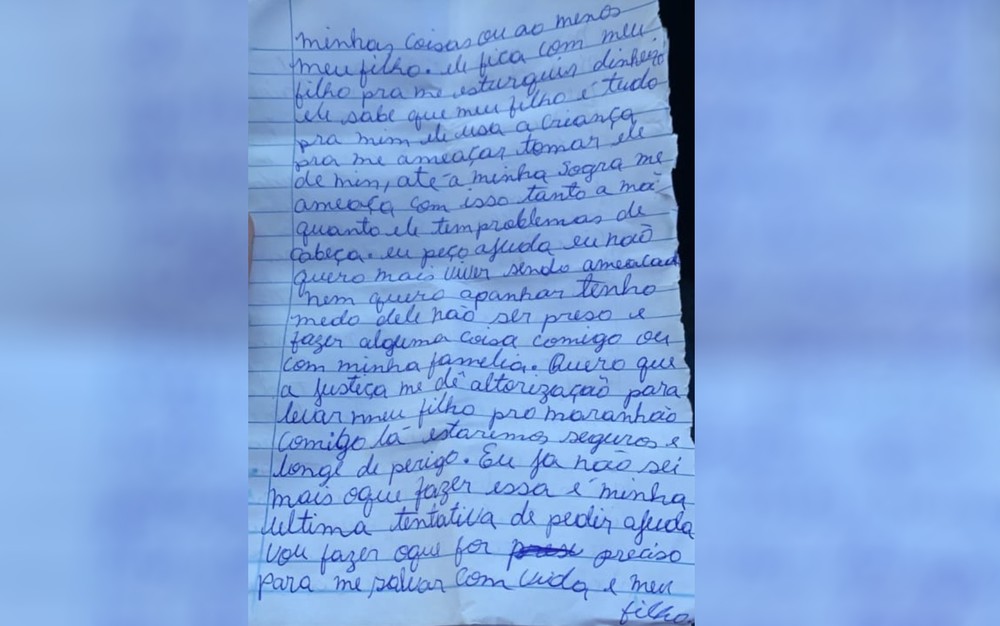 minhas coisas ou ao menos
meu filho. ele fica com meu
filho pra me esturquir dinheiro
ele sabe que meu filho é tudo
pra mim, ele usa a criança
pra me ameaçar tomar ele
de min, até a minha sogra me
ameaça com isso tanto a mãe
quanto ele tem problemas de
cabeça. eu peço ajuda eu não
quero mais viver sendo ameacad
nem quero apanhar tenho
medo dele não ser preso e
fazer alguma coisa comigo ou
com minha familia. Quero que
a justiça me dê altorização para
levar meu filho pro maranhão
comigo lá estaremos seguros e
longe de perigo. Eu ja não sei
mais oque fazer essa é minha
ultima tentativa de pedir ajuda
vou fazer oque for preciso
para me salvar com vida e meu
filho.